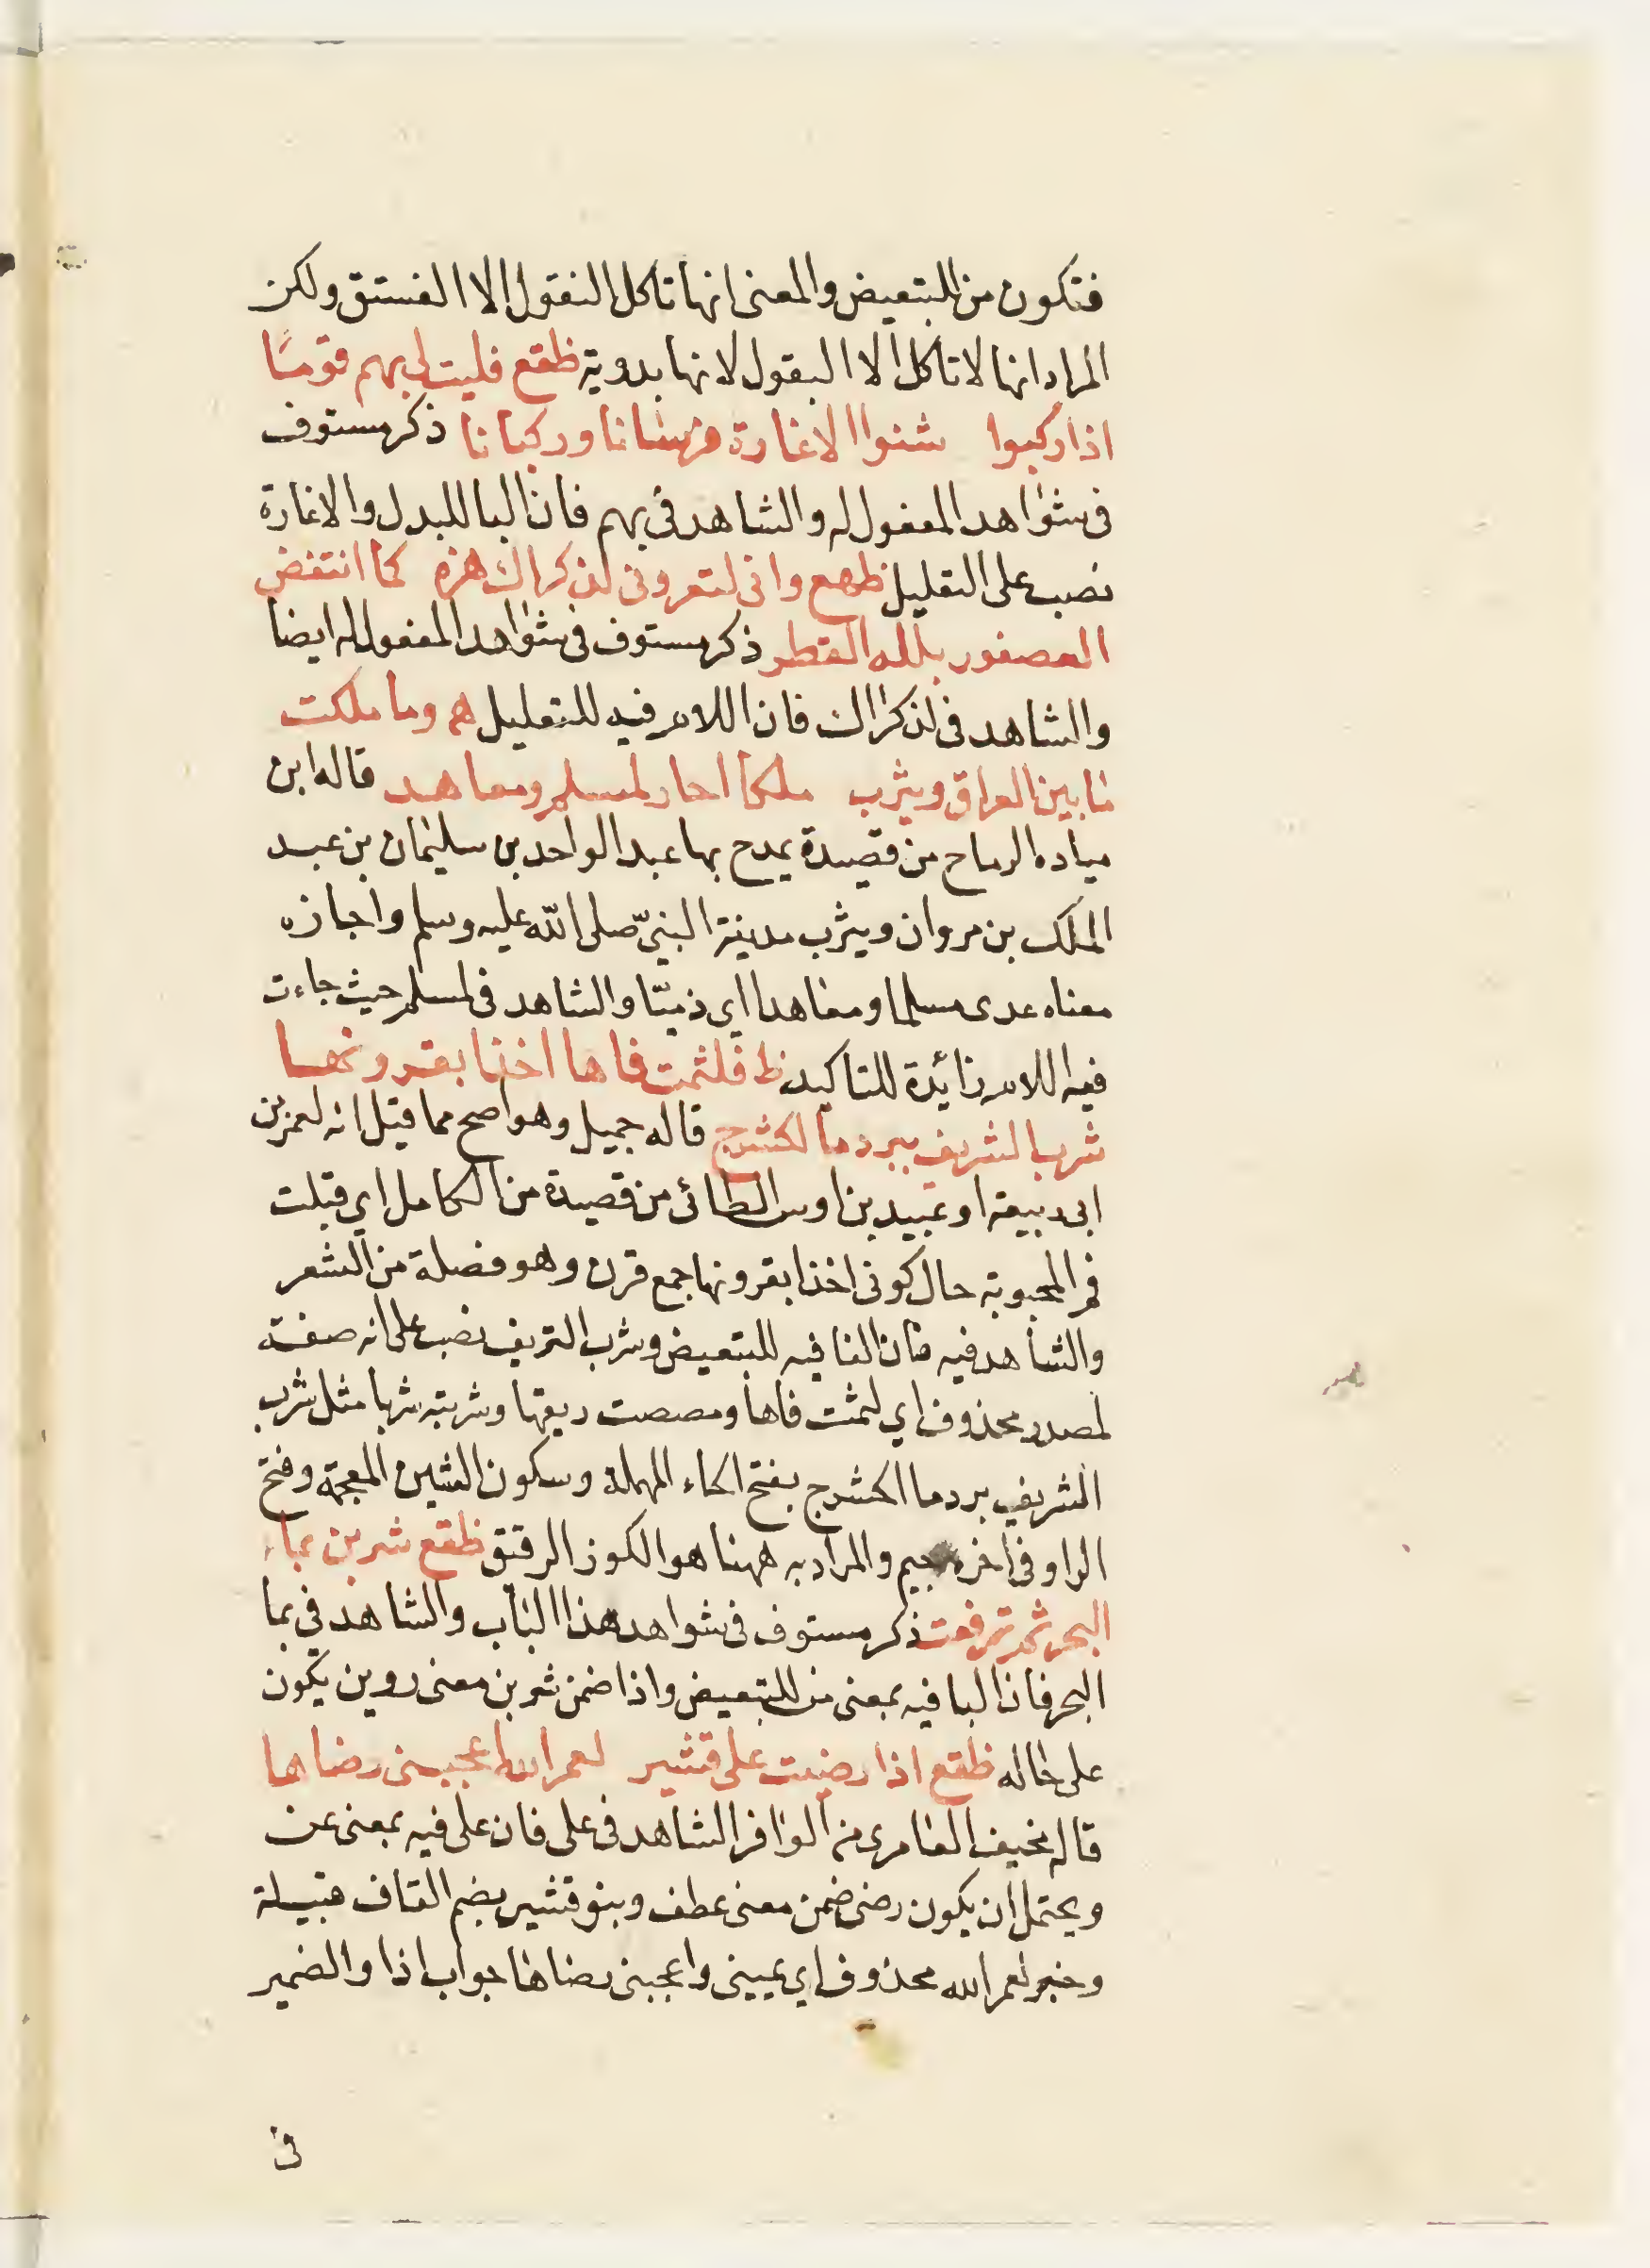 فتكون من للتبعيض والمعنى انها تاكل النقول الا الفستق ولكن
المراد انها لا تاكل الا البقول لانها بدوية ظقع فليت لى بهم قومًا
اذا ركبوا شنوا الاغارة فرسانا وركبانا ذكر مستوفى
فى شواهد المفعول له والشاهد فى بهم فان البا للبدل والاغارة
نصب على التعليل ظهع وانى لتعرونى لذكراك هزه كما انتفض
العصفور بلله القطر ذكر مستوفى فى شواهد المفعول له ايضا
والشاهد فى لذكراك فان اللام فيه للتعليل هم وما ملكت
ما بين العراق ويثرب ملكا اجار لمسلم ومعاهد قاله ابن
مياده الرماح من قصيدة يمدح بها عبد الواحد بن سليمان بن عبد
الملك بن مروان ويثرب مدينة النبىّ صلى الله عليه وسلم واجازه
معناه عدى مسلما ومعاهدا اي ذميّا والشاهد فى لمسلم حيث جاءت
فيه اللام زائدة للتاكيد ظ فلثمت فاها اخذا بقرونها
شرب الشريف ببرد ما لحشرج قاله جميل وهو اصح مما قيل انه لعمر بن
ابى ربيعة او عبيد بن اوس الطائى من قصيدة من الكامل اي قبلت
فم المحبوبة حال كونى اخذا بقرونها جمع قرن وهو فضلة من الشعر
والشاهد فيه فان الفا فيه للتبعيض وشرب النزيف نصب على انه صفة
لمصدر محذوف اي لثمت فاها ومصصت ريقها وشربته شربا مثل شرب
الشريف ببرد ما الحشرج بفتح الحاء المهملة وسكون الشين المعجمة وفتح
الراو فى اخره جيم والمراد به ههنا هو الكوز الرقيق ظقع شربن بماء
البحر ثم ترفعت ذكر مستوفى فى شواهد هذا الباب والشاهد فى بما
البحر فان البا فيه بمعنى من للتبعيض واذا ضمن شربن معنى روين يكون
على حاله ظقع اذا رضيت على قشير لعمر الله اعجبنى رضاها
قاله نحيف العامرى من الوافر الشاهد فى على فان على فيه بمعنى عن
ويحتمل ان يكون رضى ضمن معنى عطف وبنو قشير بضم القاف قبيلة
وخبر لعمر الله محذوف اي يمينى واعجبنى رضاها جواب اذا والضمير
فى